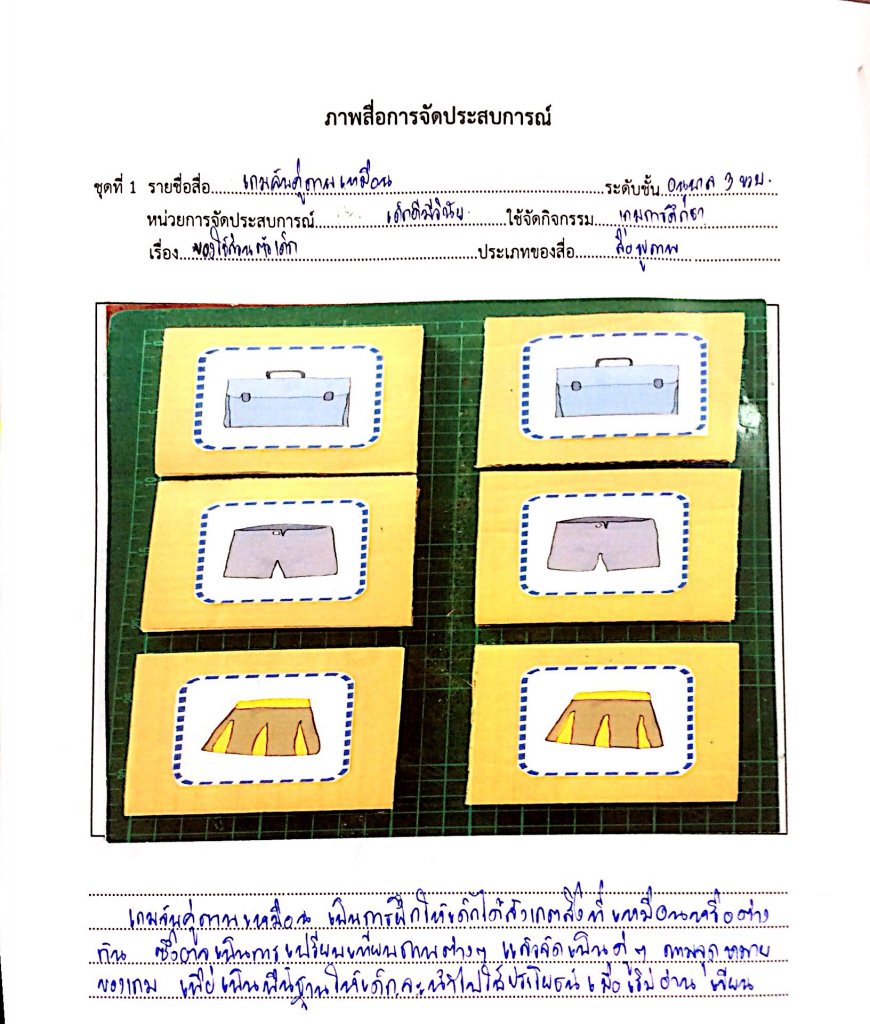 ภาพสื่อการจัดประสบการณ์
ชุดที่ 1 รายชื่อสื่อ เกมจับคู่ภาพเหมือน ระดับชั้น อนุบาล 3 ขวบ.
หน่วยการจัดประสบการณ์ เด็กดีมีวินัย ใช้จัดกิจกรรม เกมการศึกษา
เรื่อง ของใช้ส่วนตัวเด็ก ประเภทของสื่อ สื่อรูปภาพ
เกมจับคู่ภาพเหมือน เป็นการฝึกให้เด็กได้สังเกตสิ่งที่เหมือนหรือต่าง
กัน ซึ่งอาจเป็นการเปรียบเทียบภาพต่างๆ แล้วจัดเป็นคู่ๆ ตามจุดหมาย
ของเกม เพื่อเป็นพื้นฐานให้เด็กจะนำไปใช้ประโยชน์เมื่อเริ่มอ่าน เขียน